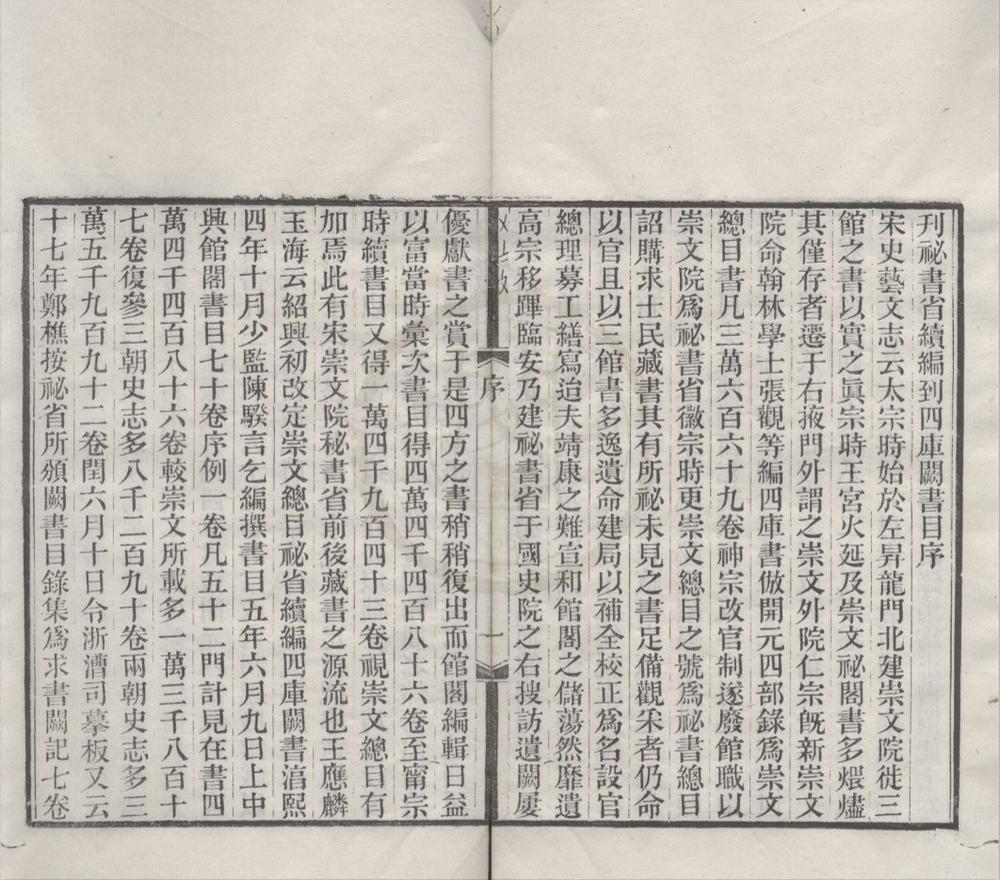 刊祕書省續編到四庫闕書目序
宋史藝文志云太宗時始於左昇龍門北建崇文院徙三
館之書以實之眞宗時王宮火延及崇文祕閣書多煨燼
其僅存者遷于右掖門外謂之崇文外院仁宗旣新崇文
院命翰林學士張觀等編四庫書倣開元四部錄爲崇文
總目書凡三萬六百六十九卷神宗改官制遂廢館職以
崇文院爲祕書省徽宗時更崇文總目之號爲祕書總目
詔購求士民藏書其有所祕未見之書足備觀采者仍命
以官且以三館書多逸遺命建局以補全校正爲名設官
總理募工繕寫迨夫靖康之難宣和館閣之儲蕩然靡遺
高宗移蹕臨安乃建祕書省于國史院之右搜訪遺闕屢
序
一
優獻書之賞于是四方之書稍稍復出而館閣編輯日益
以富當時彙次書目得四萬四千四百八十六卷至甯宗
時續書目又得一萬四千九百四十三卷視崇文總目有
加焉此有宋崇文院秘書省前後藏書之源流也王應麟
玉海云紹興初改定崇文總目祕省續編四庫闕書淳熙
四年十月少監陳騤言乞編撰書目五年六月九日上中
興館閣書目七十卷序例一卷凡五十二門計見在書四
萬四千四百八十六卷較崇文所載多一萬三千八百十
七卷復參三朝史志多八千二百九十卷兩朝史志多三
萬五千九百九十二卷閏六月十日令浙漕司摹板又云
十七年鄭樵按祕省所頒闕書目錄集爲求書闕記七卷